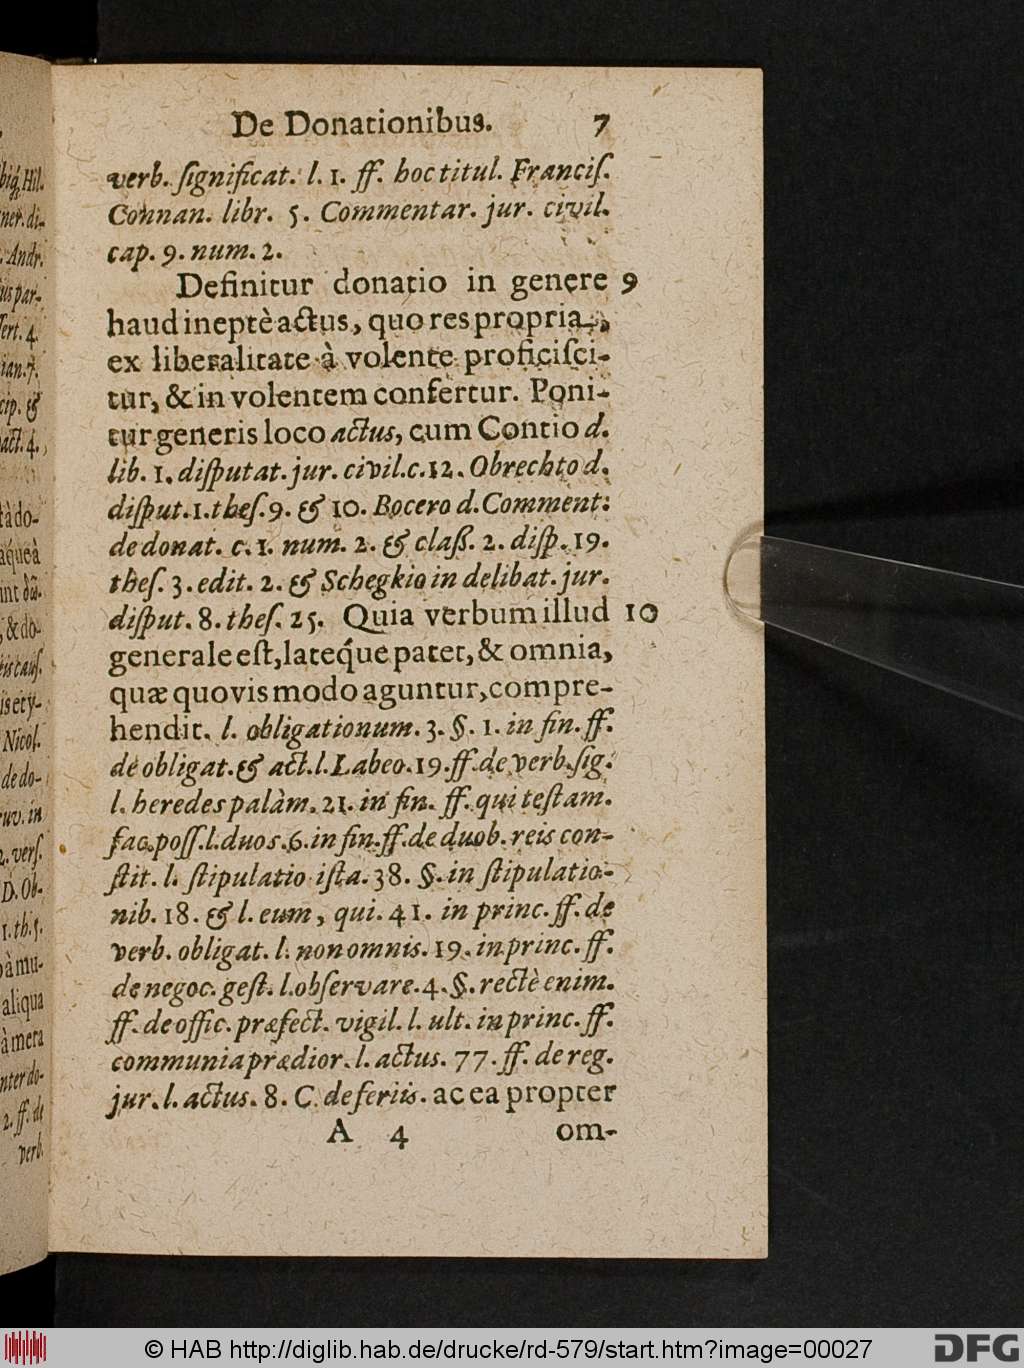 De Donationibus. 7
verb. ſignificat. l. 1. ff. hoc titul. Franciſ.
Connan. libr. 5. Commentar. jur. civil.
cap. 9. num. 2.
Definitur donatio in genere 9
haud ineptè actus, quo res propria,
ex liberalitate à volente proficiſci-
tur, & in volentem confertur. Poni-
tur generis loco actus, cum Contio d.
lib. 1. diſputat. jur. civil. c. 12. Obrechto d.
diſput. 1. theſ. 9. & 10. Bocero d. Comment:
de donat. c. 1. num. 2. & claß. 2. diſp. 19.
theſ. 3. edit. 2. & Schegkio in delibat. jur.
diſput. 8. theſ. 25. Quia verbum illud 10
generale eſt, lateq́ue patet, & omnia,
quæ quovis modo aguntur, compre-
hendit. l. obligationum. 3. §. 1. in fin. ff.
de obligat. & act. l. Labeo. 19. ff. de verb. ſig.
l. heredes palàm. 21. in fin. ff. qui teſtam.
fac. poſſ. l. duos. 6. in fin. ff. de duob. reis con-
ſtit. l. ſtipulatio iſta. 38. §. in ſtipulatio-
nib. 18. & l. eum, qui. 41. in princ. ff. de
verb. obligat. l. non omnis. 19. in princ. ff.
de negoc. geſt. l. obſervare. 4. §. rectè enim.
ff. de offic. præfect. vigil. l. ult. in princ. ff.
communia prædior. l. actus. 77. ff. de reg.
jur. l. actus. 8. C. de feriis. ac ea propter
A 4 om-
Hil.
ner. di-
Andr.
us par-
4.
ian. 7.
cip. &
act. 4.
à do-
aq́ue à
& do-
Nicol.
de do-
in
verſ.
D. Ob-
1. th. 5.
à mu-
aliqua
à mera
nter do-
2. ff. de
verb.
© HAB http://diglib.hab.de/drucke/rd-579/start.htm?image=00027
DFG